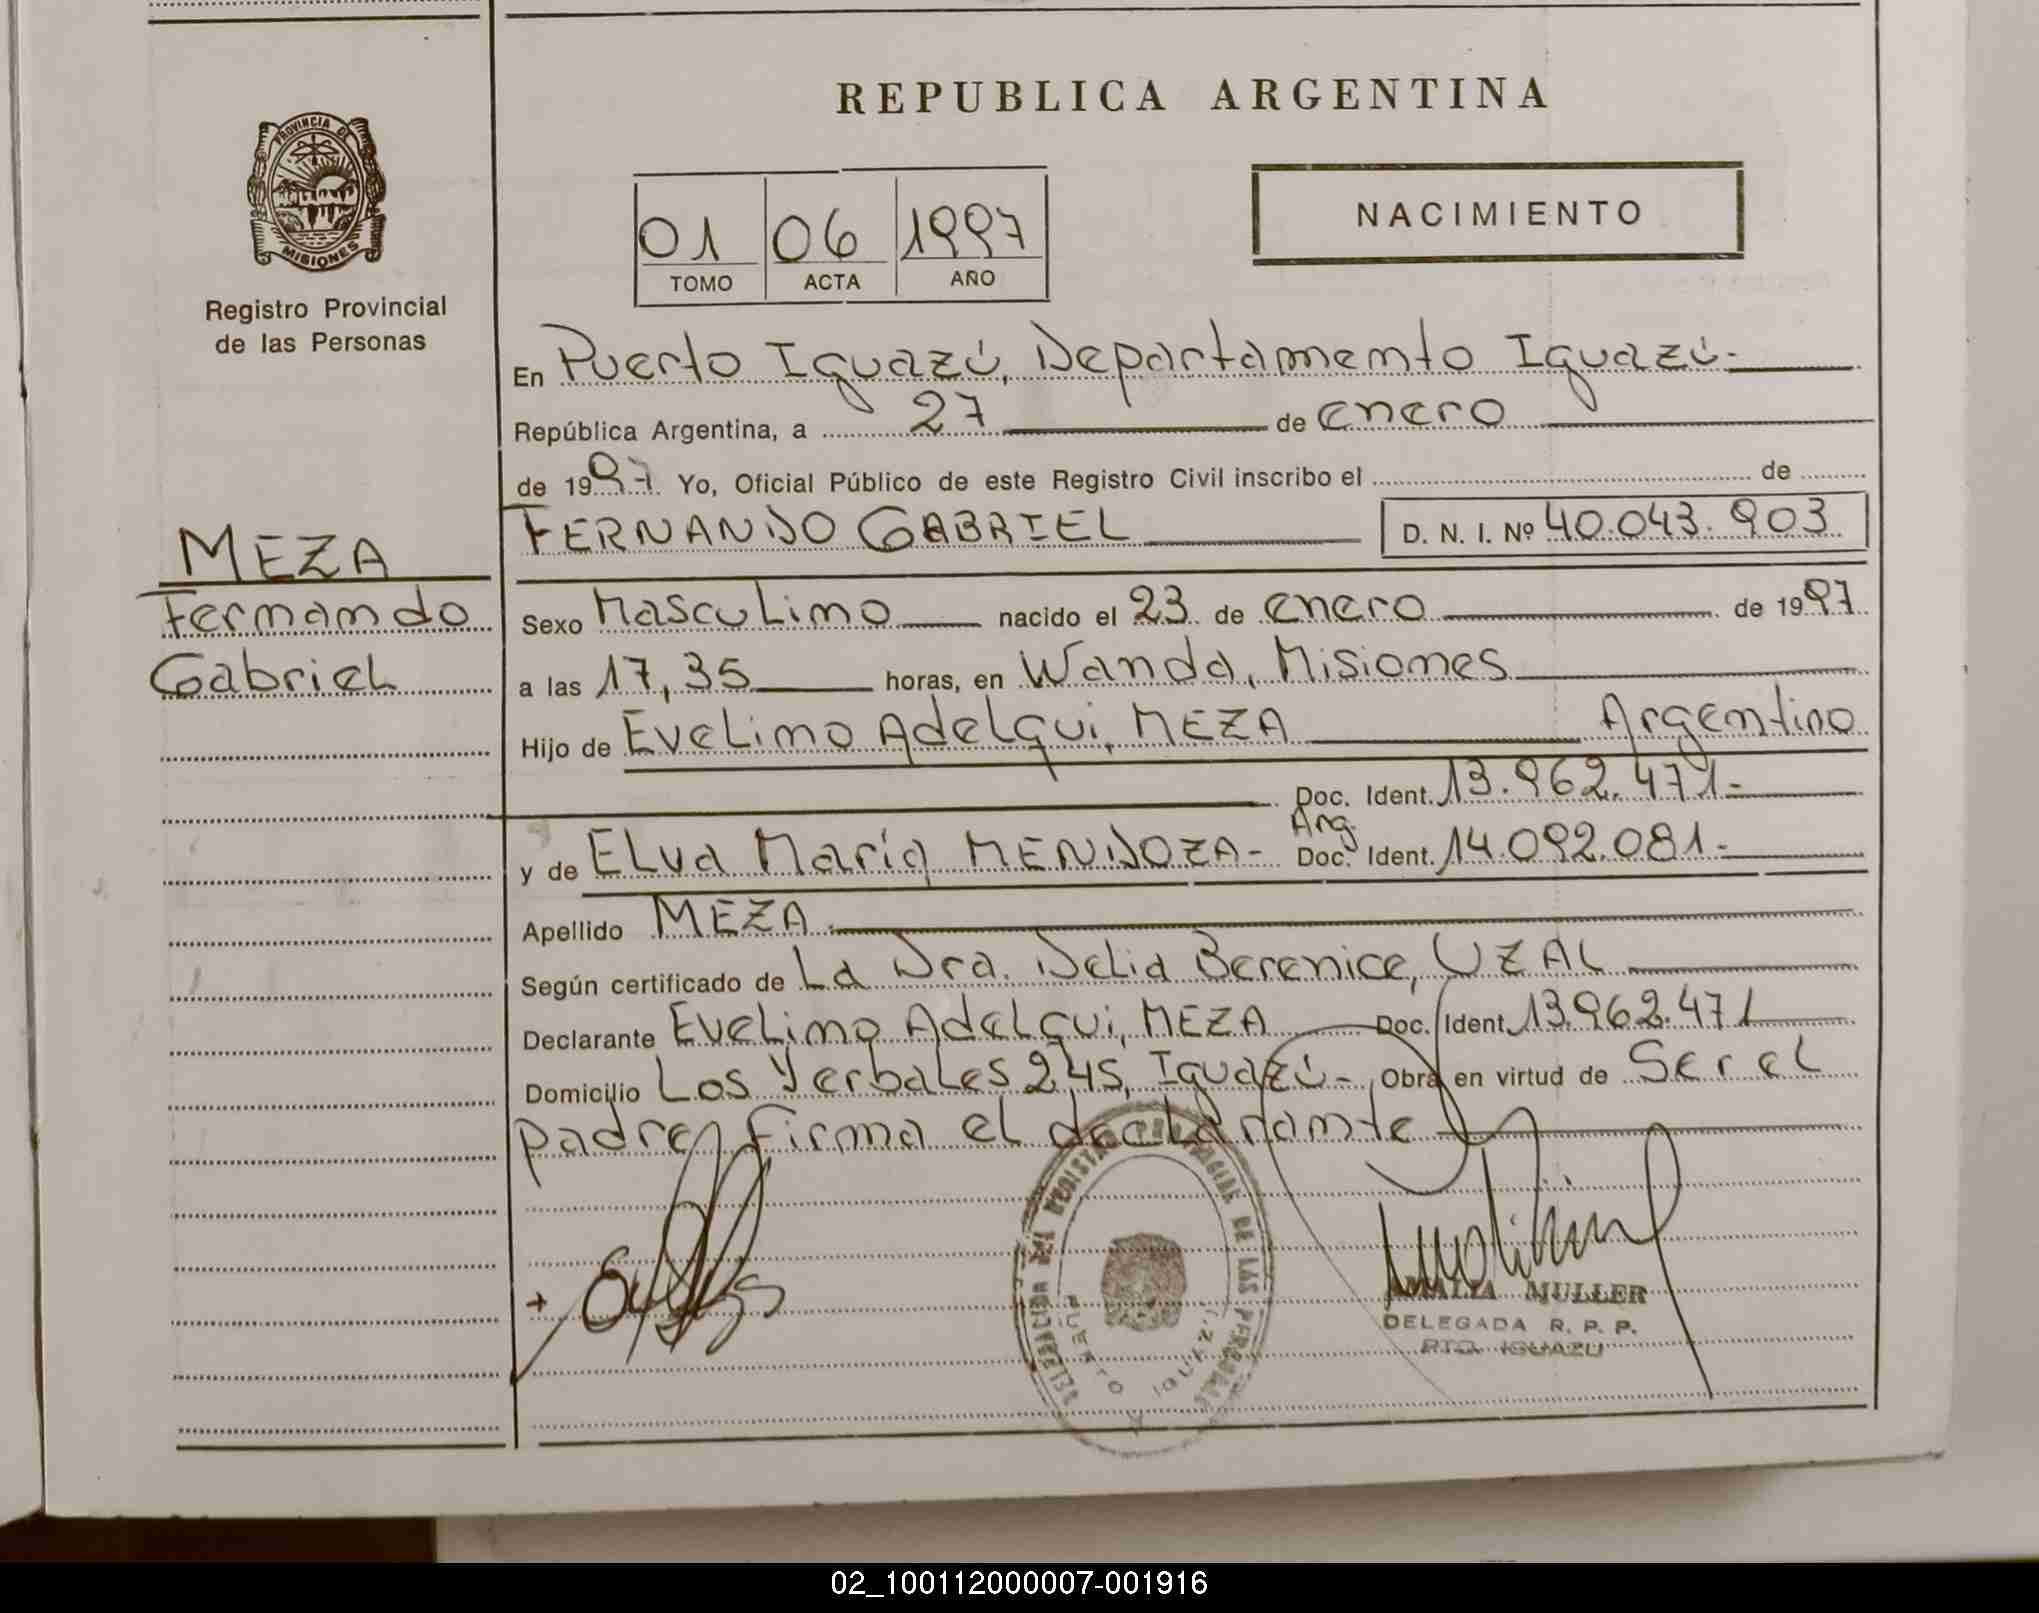 REPUBLICA ARGENTINA
PROVINCIA DE
MISIONES
Registro Provincial
de las Personas
01 06 1997
TOMO ACTA AÑO
NACIMIENTO
En Puerto Iguazú, Departamento Iguazú.-
República Argentina, a 27 de enero
de 1997. Yo, Oficial Público de este Registro Civil inscribo el de
FERNANDO GABRIEL D. N. I. Nº 40.043.903
MEZA
Fernando
Gabriel
Sexo Masculino nacido el 23 de enero de 1997
a las 17,35 horas, en Wanda, Misiones
Hijo de Evelino Adelqui, MEZA Argentino
Doc. Ident. 13.962.471-
Arg.
y de Elva María MENDOZA- Doc. Ident. 14.092.081.-
Apellido MEZA
Según certificado de La Dra. Delia Berenice, UZAL
Declarante Evelino Adelqui, MEZA Doc. Ident. 13.962.471
Domicilio Los Yerbales 245, Iguazú- Obra en virtud de Ser el
padre, firma el declarante
REGISTRO PROVINCIAL DE LAS PERSONAS
PUERTO IGUAZU
AMALIA MULLER
DELEGADA R. P. P.
PTO. IGUAZU
02_100112000007-001916